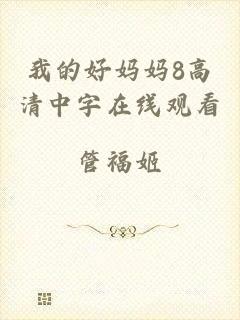 我的好妈妈8高
清中字在线观看
管福姬